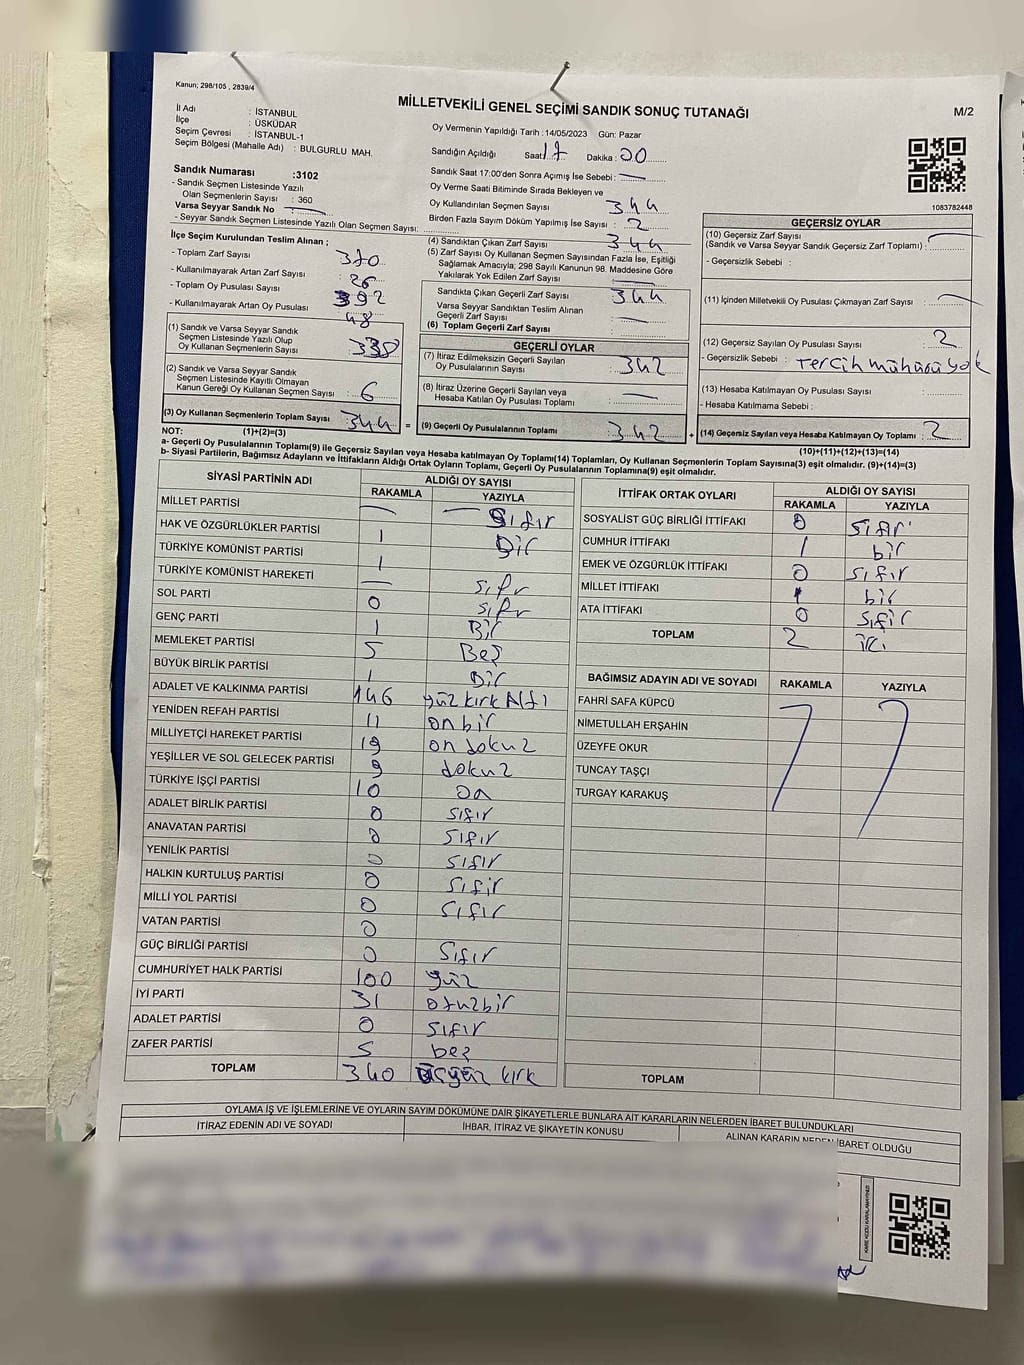 Kanun; 298/105 , 2839/4
MİLLETVEKİLİ GENEL SEÇİMİ SANDIK SONUÇ TUTANAĞI
M/2
İl Adı : İSTANBUL
İlçe : ÜSKÜDAR
Seçim Çevresi : İSTANBUL-1
Seçim Bölgesi (Mahalle Adı) : BULGURLU MAH.
Sandık Numarası :3102
- Sandık Seçmen Listesinde Yazılı
Olan Seçmenlerin Sayısı : 360
Varsa Seyyar Sandık No —
- Seyyar Sandık Seçmen Listesinde Yazılı Olan Seçmen Sayısı:
İlçe Seçim Kurulundan Teslim Alınan ;
- Toplam Zarf Sayısı : 370
- Kullanılmayarak Artan Zarf Sayısı : 26
- Toplam Oy Pusulası Sayısı : 392
- Kullanılmayarak Artan Oy Pusulası : 48
(1) Sandık ve Varsa Seyyar Sandık
Seçmen Listesinde Yazılı Olup
Oy Kullanan Seçmenlerin Sayısı : 338
(2) Sandık ve Varsa Seyyar Sandık
Seçmen Listesinde Kayıtlı Olmayan
Kanun Gereği Oy Kullanan Seçmen Sayısı : 6
(3) Oy Kullanan Seçmenlerin Toplam Sayısı : 344 =
Oy Vermenin Yapıldığı Tarih : 14/05/2023 Gün: Pazar
Sandığın Açıldığı Saat: 17 Dakika : 00
Sandık Saat 17:00'den Sonra Açımış İse Sebebi : —
Oy Verme Saati Bitiminde Sırada Bekleyen ve
Oy Kullandırılan Seçmen Sayısı : 344
Birden Fazla Sayım Döküm Yapılmış İse Sayısı : 2
(4) Sandıktan Çıkan Zarf Sayısı : 344
(5) Zarf Sayısı Oy Kullanan Seçmen Sayısından Fazla İse, Eşitliği
Sağlamak Amacıyla; 298 Sayılı Kanunun 98. Maddesine Göre
Yakılarak Yok Edilen Zarf Sayısı : —
Sandıkta Çıkan Geçerli Zarf Sayısı : 344
Varsa Seyyar Sandıktan Teslim Alınan
Geçerli Zarf Sayısı : —
(6) Toplam Geçerli Zarf Sayısı :
GEÇERLİ OYLAR
(7) İtiraz Edilmeksizin Geçerli Sayılan
Oy Pusulalarının Sayısı : 342
(8) İtiraz Üzerine Geçerli Sayılan veya
Hesaba Katılan Oy Pusulası Toplamı : —
(9) Geçerli Oy Pusulalarının Toplamı : 342 +
1083782448
GEÇERSİZ OYLAR
(10) Geçersiz Zarf Sayısı
(Sandık ve Varsa Seyyar Sandık Geçersiz Zarf Toplamı) : —
- Geçersizlik Sebebi :
(11) İçinden Milletvekili Oy Pusulası Çıkmayan Zarf Sayısı : —
(12) Geçersiz Sayılan Oy Pusulası Sayısı : 2
- Geçersizlik Sebebi : Tercih mühürü yok
(13) Hesaba Katılmayan Oy Pusulası Sayısı :
- Hesaba Katılmama Sebebi :
(14) Geçersiz Sayılan veya Hesaba Katılmayan Oy Toplamı : 2
NOT: (1)+(2)=(3)
(10)+(11)+(12)+(13)=(14)
a- Geçerli Oy Pusulalarının Toplamı(9) ile Geçersiz Sayılan veya Hesaba katılmayan Oy Toplamı(14) Toplamları, Oy Kullanan Seçmenlerin Toplam Sayısına(3) eşit olmalıdır. (9)+(14)=(3)
b- Siyasi Partilerin, Bağımsız Adayların ve İttifakların Aldığı Ortak Oyların Toplamı, Geçerli Oy Pusulalarının Toplamına(9) eşit olmalıdır.
SİYASİ PARTİNİN ADI ALDIĞI OY SAYISI
RAKAMLA YAZIYLA
MİLLET PARTİSİ — — Sıfır
HAK VE ÖZGÜRLÜKLER PARTİSİ 1 Bir
TÜRKİYE KOMÜNİST PARTİSİ 1
TÜRKİYE KOMÜNİST HAREKETİ — sıfır
SOL PARTİ 0 sıfır
GENÇ PARTİ 1 Bir
MEMLEKET PARTİSİ 5 Beş
BÜYÜK BİRLİK PARTİSİ 1 Bir
ADALET VE KALKINMA PARTİSİ 146 yüz kırk Altı
YENİDEN REFAH PARTİSİ 11 on bir
MİLLİYETÇİ HAREKET PARTİSİ 19 on dokuz
YEŞİLLER VE SOL GELECEK PARTİSİ 9 dokuz
TÜRKİYE İŞÇİ PARTİSİ 10 on
ADALET BİRLİK PARTİSİ 0 sıfır
ANAVATAN PARTİSİ 0 sıfır
YENİLİK PARTİSİ 0 sıfır
HALKIN KURTULUŞ PARTİSİ 0 sıfır
MİLLİ YOL PARTİSİ 0 sıfır
VATAN PARTİSİ 0
GÜÇ BİRLİĞİ PARTİSİ 0 sıfır
CUMHURİYET HALK PARTİSİ 100 yüz
İYİ PARTİ 31 otuzbir
ADALET PARTİSİ 0 sıfır
ZAFER PARTİSİ 5 beş
TOPLAM 340 üçyüz kırk
İTTİFAK ORTAK OYLARI ALDIĞI OY SAYISI
RAKAMLA YAZIYLA
SOSYALİST GÜÇ BİRLİĞİ İTTİFAKI 0 sıfır
CUMHUR İTTİFAKI 1 bir
EMEK VE ÖZGÜRLÜK İTTİFAKI 0 sıfır
MİLLET İTTİFAKI 1 bir
ATA İTTİFAKI 0 sıfır
TOPLAM 2 iki
BAĞIMSIZ ADAYIN ADI VE SOYADI RAKAMLA YAZIYLA
FAHRİ SAFA KÜPCÜ
NİMETULLAH ERŞAHİN
ÜZEYFE OKUR
TUNCAY TAŞÇI
TURGAY KARAKUŞ
TOPLAM
OYLAMA İŞ VE İŞLEMLERİNE VE OYLARIN SAYIM DÖKÜMÜNE DAİR ŞİKAYETLERLE BUNLARA AİT KARARLARIN NELERDEN İBARET BULUNDUKLARI
İTİRAZ EDENİN ADI VE SOYADI İHBAR, İTİRAZ VE ŞİKAYETİN KONUSU ALINAN KARARIN NEDEN İBARET OLDUĞU
KARE KODU KARALAMAYINIZ!